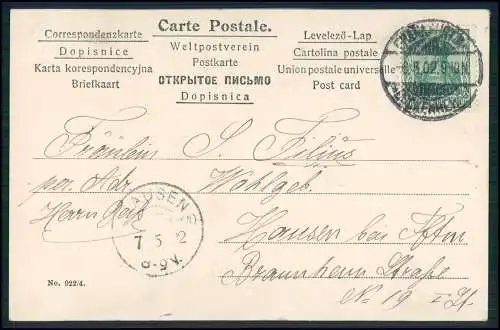 Carte Postale.
Correspondenzkarte
Dopisnice
Karta korespondencyjna
Briefkaart
Weltpostverein
Postkarte
ОТКРЫТОЕ ПИСЬМО
Dopisnica
Levelező-Lap
Cartolina postale
Union postale universelle
Post card
5.02.9
Fräulein S. Filius
per. Adr. Wohlgeb.
Herrn
HAUSEN
7 5 2
8-9V.
Hausen bei Ffm
Braunheim Straße
No 19
No. 922/4.